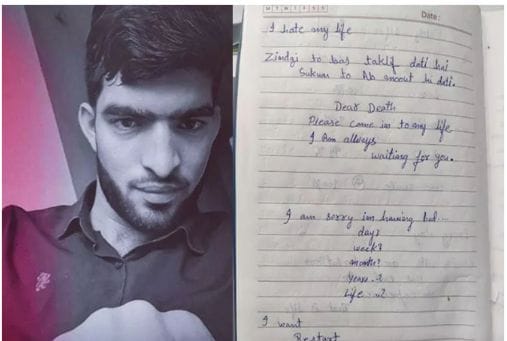 M T W T F S S
Date:
I hate my life
Zindgi to bas taklif deti hai
Sukun to Ab moout hi deti.
Dear Death
Please come in to my life
I Am allways
waiting for you.
I am sorry im having bad...
day?
week?
month?
Years..?
Life ..?
I want
Restart